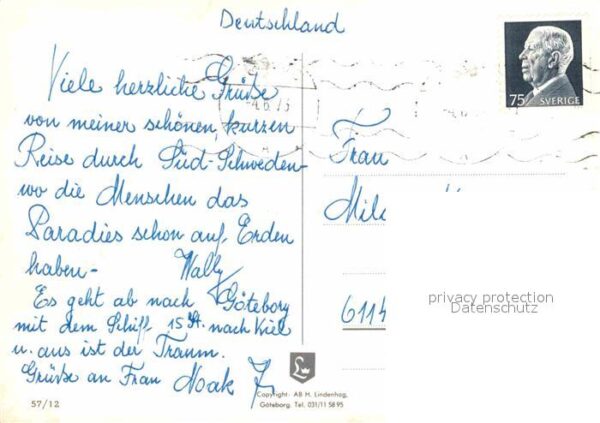 Deutschland
75 SVERIGE
4.6.73
Viele herzliche Grüße
von meiner schönen, kurzen
Reise durch Süd-Schweden-
wo die Menschen das
Paradies schon auf Erden
haben- Wally
Es geht ab nach Göteborg
mit dem Schiff 15 St. nach Kiel
u. aus ist der Traum.
Grüße an Frau Noak
Frau
6114
privacy protection
Datenschutz
Copyright: AB H. Lindenhag,
Göteborg. Tel. 031/11 58 95
57/12